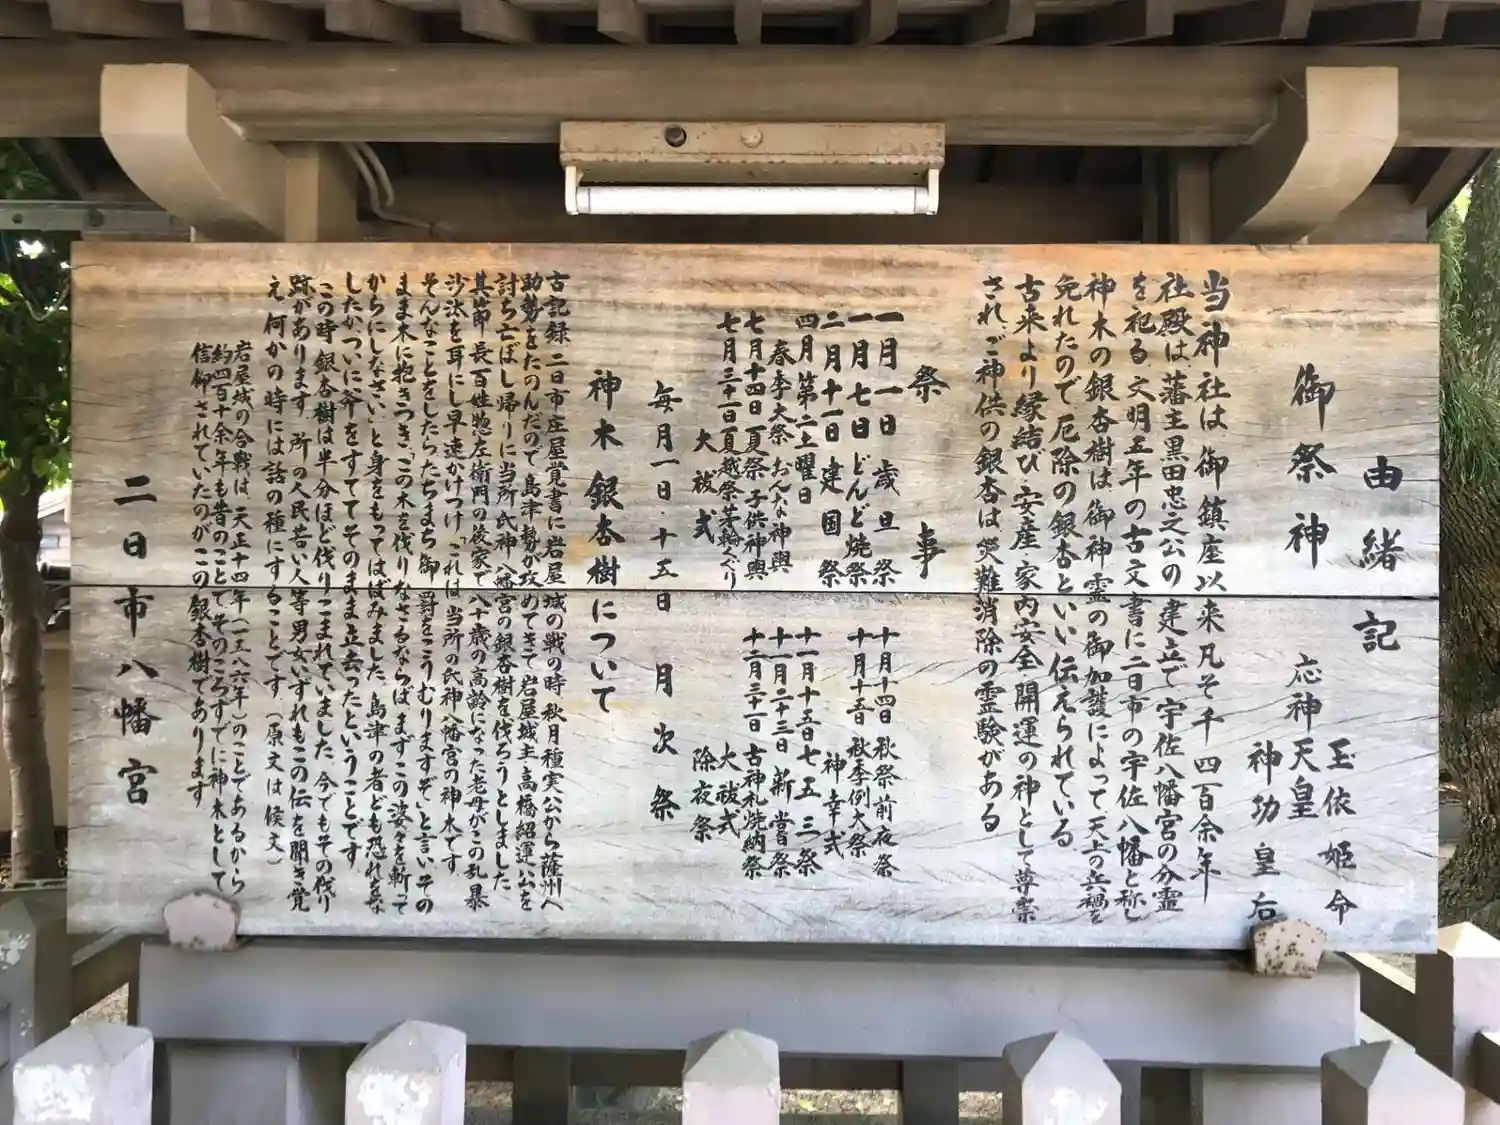 由緒記
御祭神
玉依姫命
応神天皇
神功皇后
当神社は御鎮座以来凡そ千四百余年
社殿は藩主黒田忠之公の建立で宇佐八幡宮の分霊
を祀る文明五年の古文書に二日市の宇佐八幡と称し
神木の銀杏樹は御神霊の御加護によって天上の兵禍を
免れたので厄除の銀杏といい伝えられている
古来より縁結び安産家内安全開運の神として尊崇
されご神供の銀杏は災難消除の霊験がある
祭事
一月一日歳旦祭
一月七日どんど焼祭
二月十一日建国祭
四月第二土曜日
春季大祭おんな神輿
七月十四日夏祭子供神輿
七月三十一日夏越祭茅輪くぐり
大祓式
十月十四日秋祭前夜祭
十月十五日秋季例大祭
神幸式
十一月十五日七五三祭
十一月二十三日新嘗祭
十二月三十一日古神札焼納祭
大祓式
除夜祭
毎月一日、十五日月次祭
神木銀杏樹について
古記録二日市庄屋覚書に岩屋城の戦の時秋月種実公から薩州へ
助勢をたのんだので島津勢が攻めてきて岩屋城主高橋紹運公を
討ち亡ばし帰りに当所氏神八幡宮の銀杏樹を伐ろうとしました
其節長百姓惣左衛門の後家で八十歳の高齢になった老母がこの乱暴
沙汰を耳にし早速かけつけ「これは当所の氏神八幡宮の神木です
そんなことをしたらたちまち御罰をこうむりますぞ」と言いその
まま木に抱きつき「この木を伐りなさるならばまずこの婆々を斬って
からにしなさい」と身をもってはばみました島津の者ども恐れをな
したかついに斧をすててそのまま立去ったということです
この時銀杏樹は半分ほど伐りこまれていました今でもその伐り
跡があります所の人民若い人等男女いずれもこの伝を聞き覚
え何かの時には話の種にすることです(原文は候文)
岩屋城の合戦は天正十四年(一五八六年)のことであるから
約四百十余年も昔のことでそのころすでに神木として
信仰されていたのがこの銀杏樹であります
二日市八幡宮